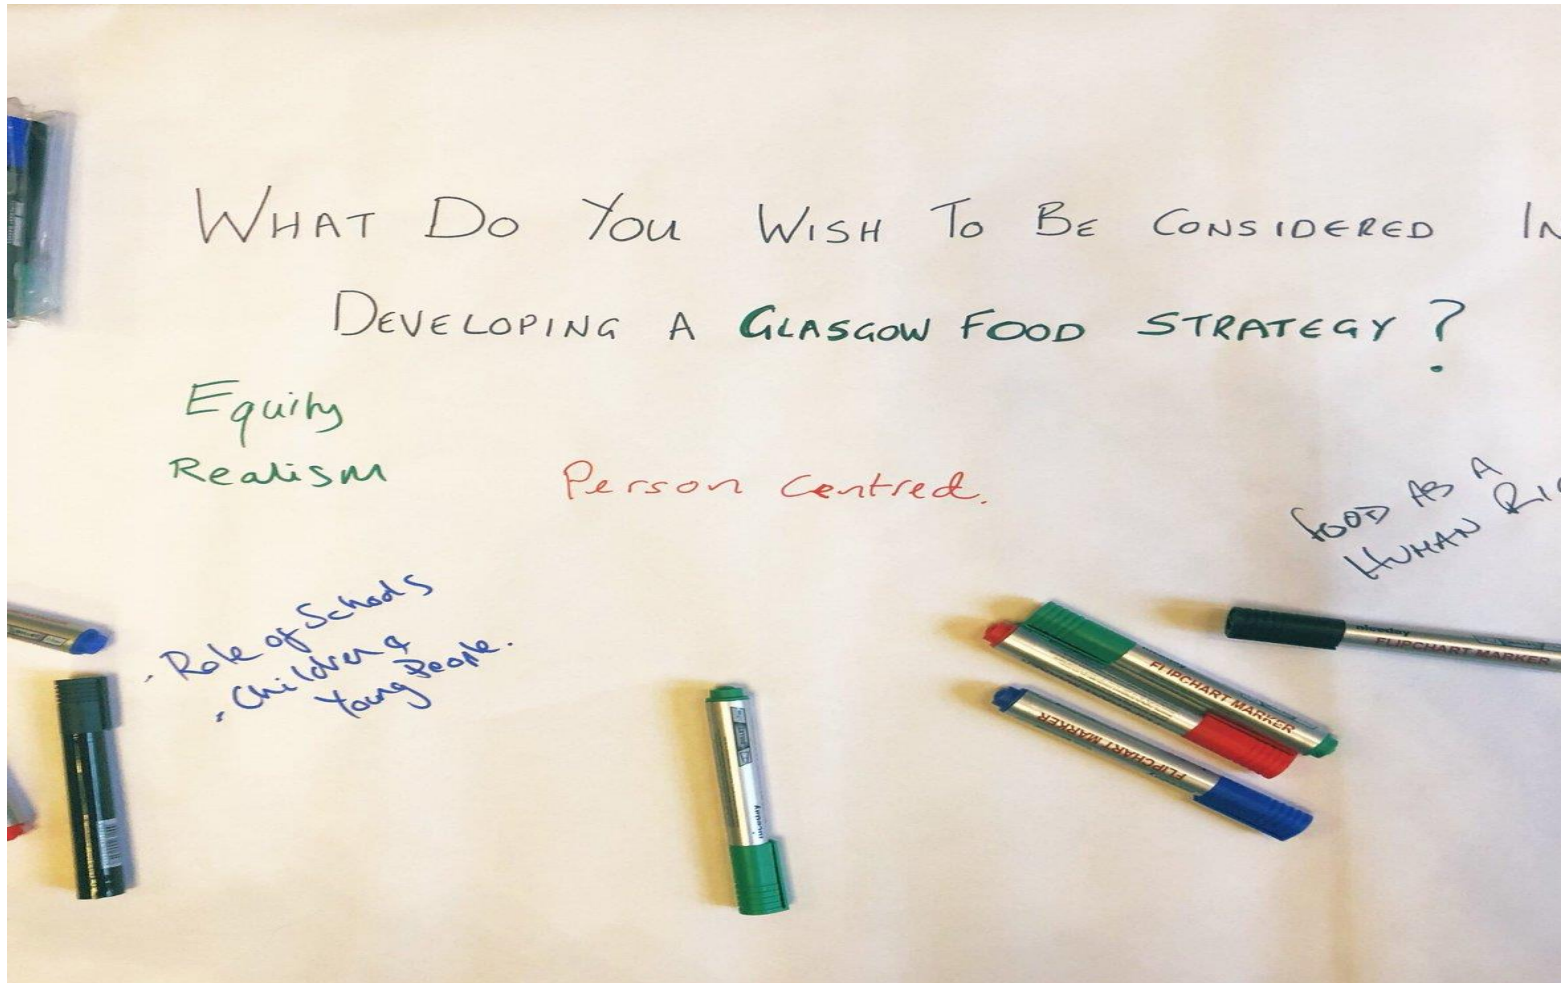 WHAT DO YOU WISH TO BE CONSIDERED IN
DEVELOPING A GLASGOW FOOD STRATEGY?
Equity
Realism
Person Centred.
FOOD AS A
HUMAN
. Role of Schools
. Children &
Young People.
FLIPCHART MARKER
FLIPCHART MARKER
FLIPCHART MARKER